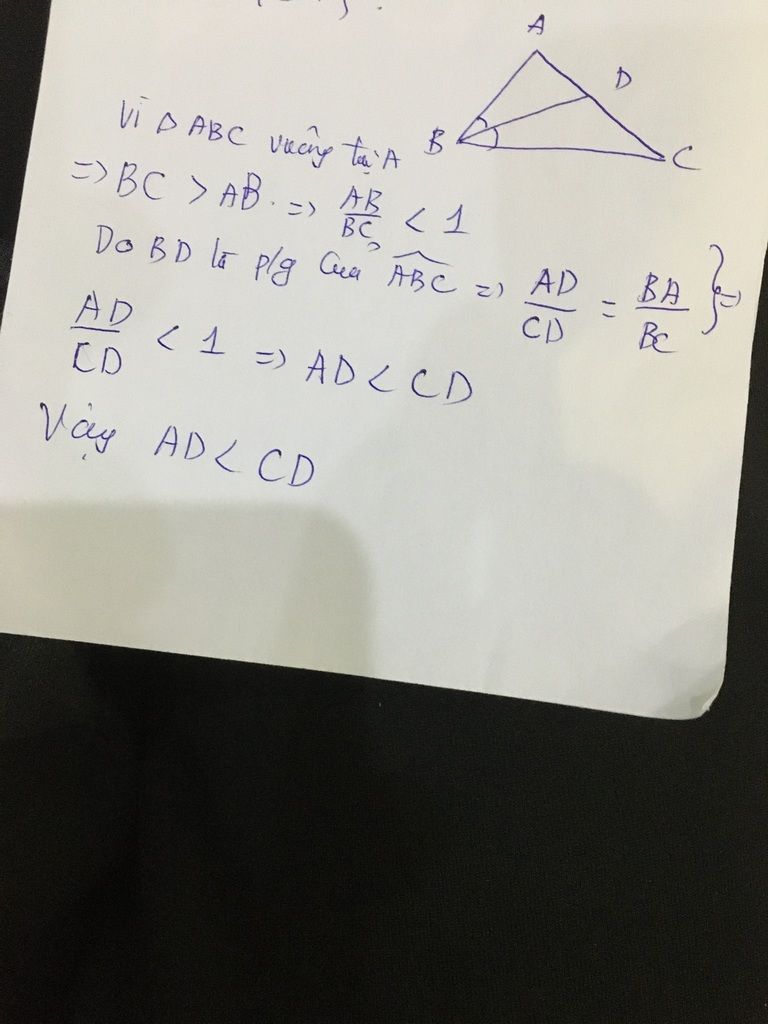 A
D
B
C
Vì Δ ABC vuông tại A
=> BC > AB. => AB/BC < 1
Do BD là p/g của ABC => AD/CD = BA/BC } =>
AD/CD < 1 => AD < CD
Vậy AD < CD